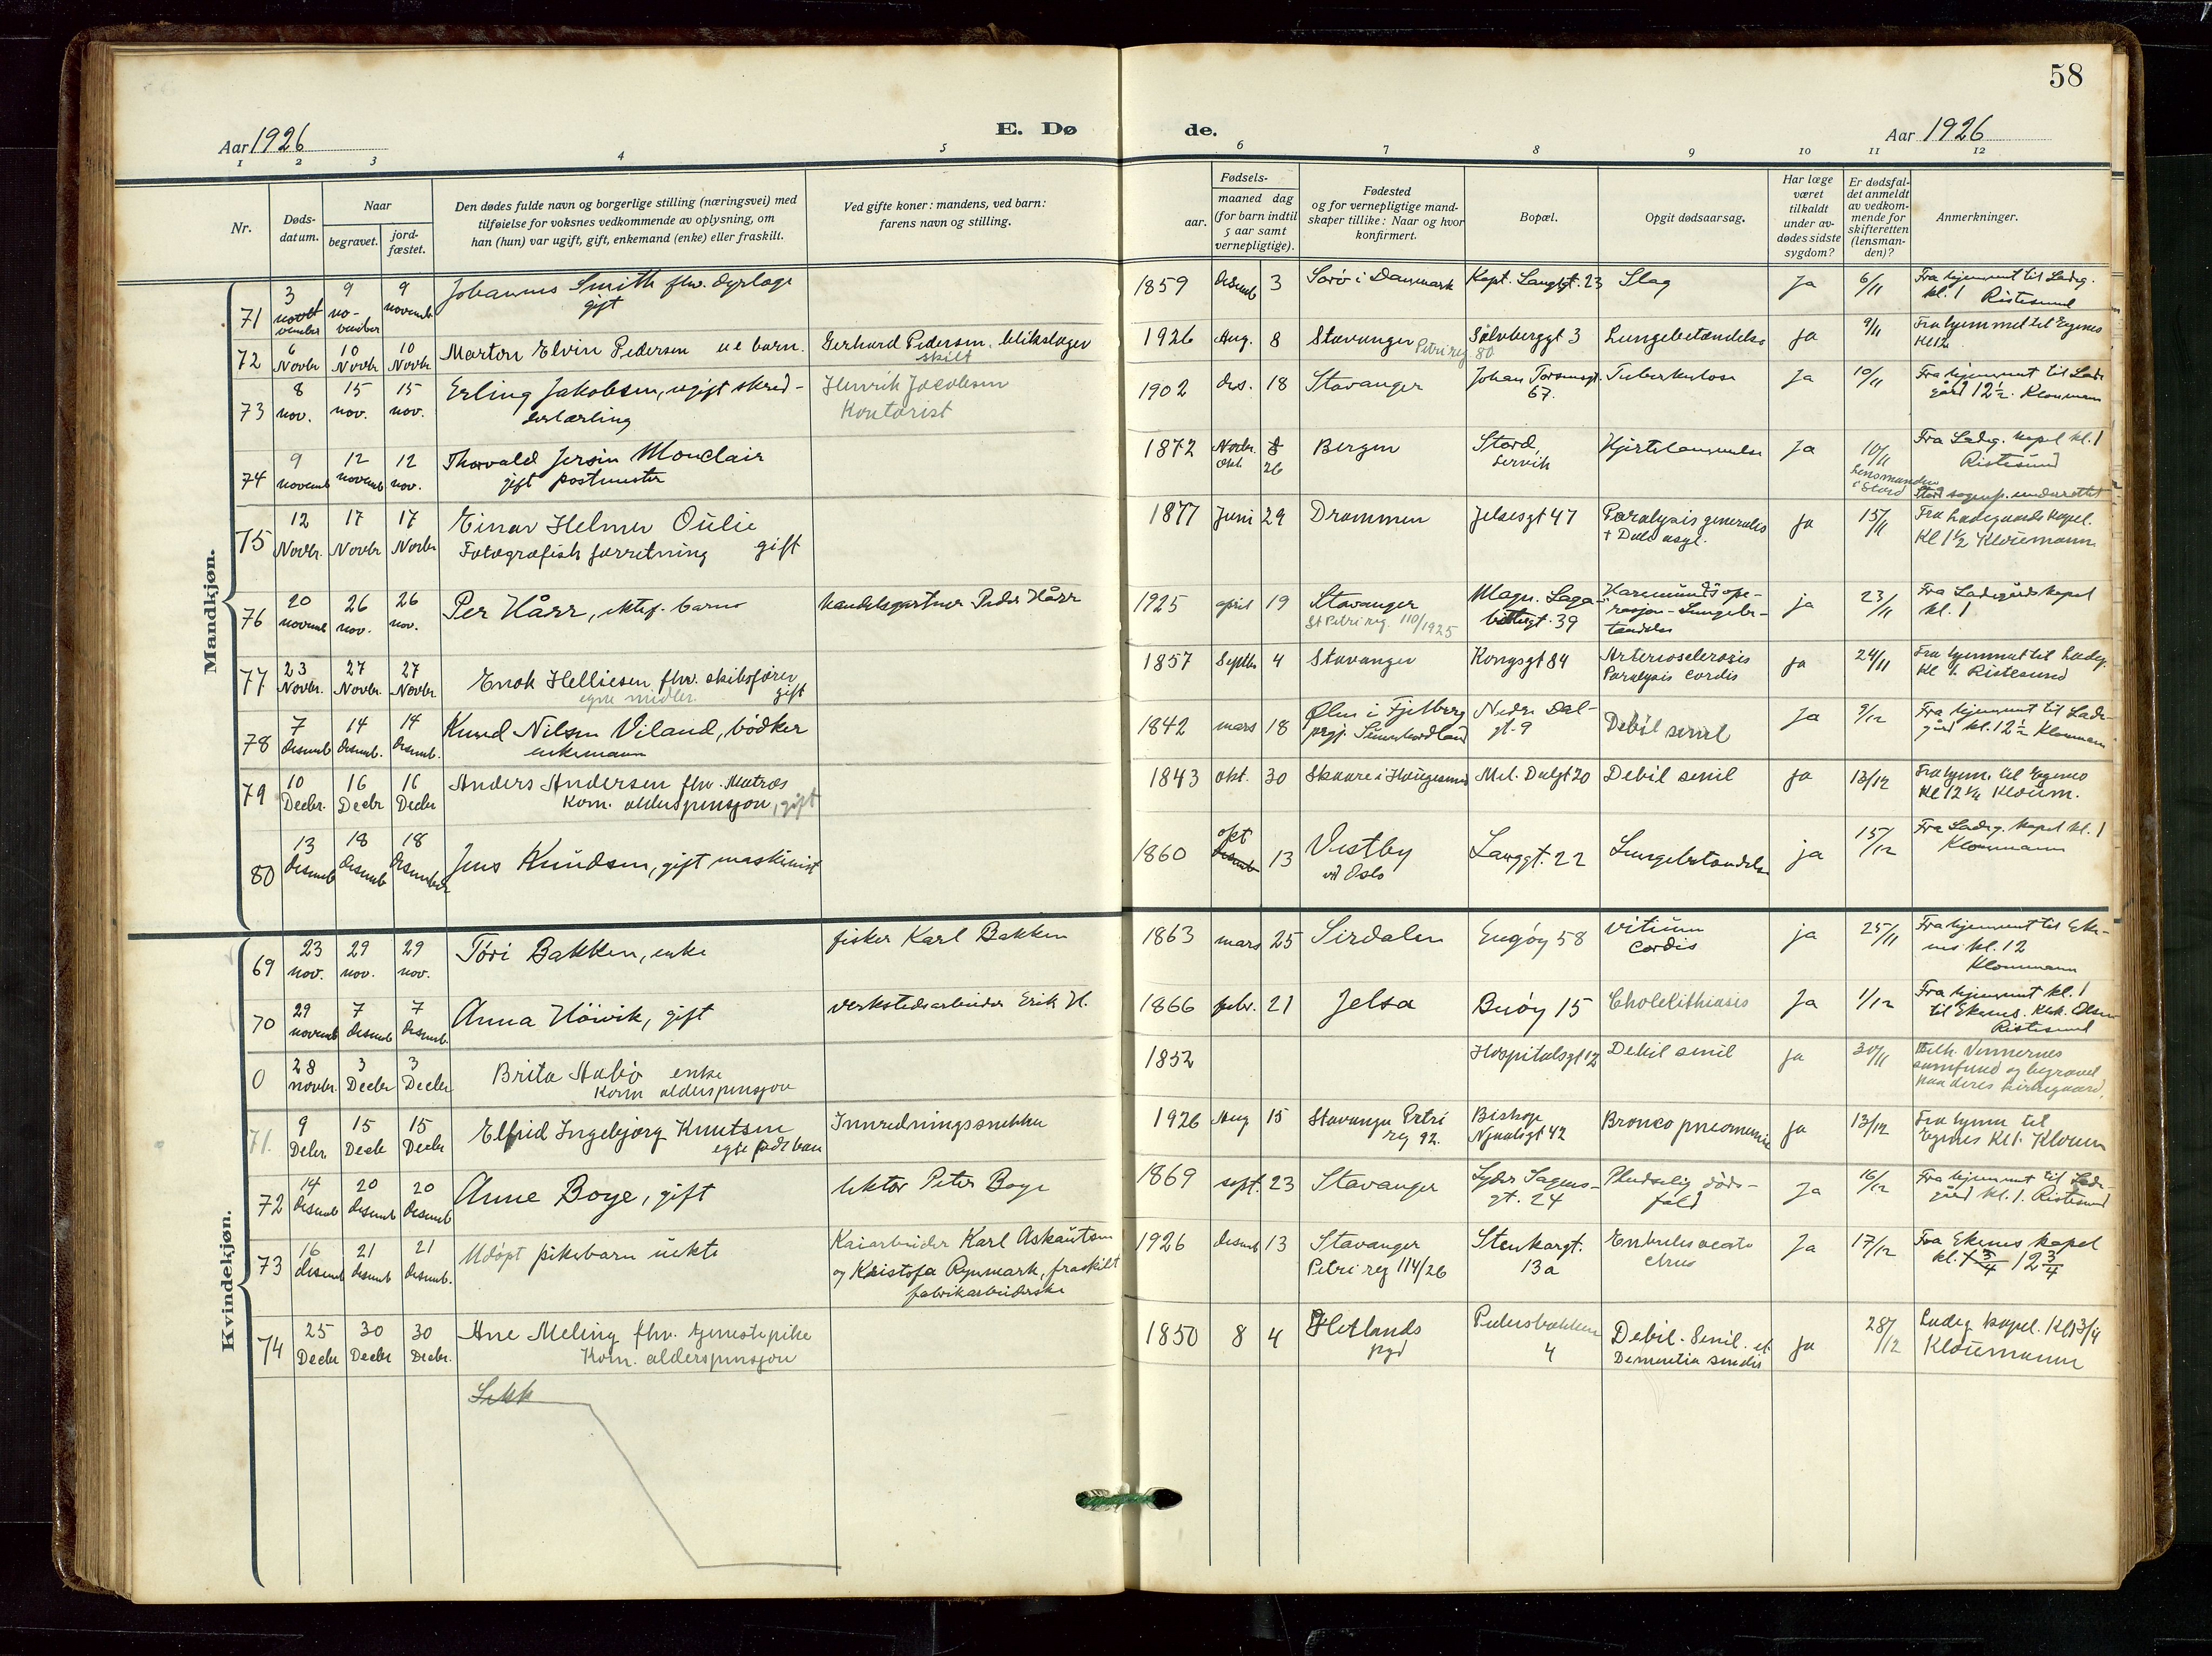 58
Aar 1926
E. Dø
de.
Aar 1926
1 2 3 4 5 6 7 8 9 10 11 12
Nr.
Døds-
datum.
Naar
begravet.
jord-
fæstet.
Den dødes fulde navn og borgerlige stilling (næringsvei) med
tilføielse for voksnes vedkommende av oplysning, om
han (hun) var ugift, gift, enkemand (enke) eller fraskilt.
Ved gifte koner: mandens, ved barn:
farens navn og stilling.
Fødsels-
aar.
maaned dag
(for barn indtil
5 aar samt
vernepligtige).
Fødested
og for vernepligtige mand-
skaper tillike: Naar og hvor
konfirmert.
Bopæl.
Opgit dødsaarsag.
Har læge
været
tilkaldt
under av-
dødes sidste
sygdom?
Er dødsfal-
det anmeldt
av vedkom-
mende for
skifteretten
(lensman-
den)?
Anmerkninger.
Mandkjøn.
71 3 november 9 november 9 novemb Johannes Smith fhv. dyrlæge
gift
1859 desemb 3 Sorø i Danmark Kapt. Langgt. 23 Slag Ja 6/11 Fra hjemmet til Ladeg.
kl. 1 Ristesund
72 6 Novbr 10 Novbr 10 Novbr Marton Elvin Pedersen u e barn. Gerhard Pedersen, blikslager
skilt
1926 Aug. 8 Stavanger Petri reg 80 Sølvberggt 3 Lungebetændelse Ja 9/11 Fra hjemmet til Egenes
Kl 12
73 8 nov. 15 nov. 15 nov. Erling Jakobsen, ugift skred-
derlærling
Henrik Jacobsen
Kontorist
1902 des. 18 Stavanger Johan Torsonsgt.
67.
Tuberkulose Ja 10/11 Fra hjemmet til Lade
gård 12 1/2. Kloumann
74 9 novemb 12 novemb 12 nov. Thorvald Jersin Monclair
gift postmester
1872 Novbr. 8
Okt. 26
Bergen Stord,
Lervik
Hjertelammelse Ja 10/11
Lensmanden
i Stord
Fra Ladeg. kapel kl. 1
Ristesund
Stord sognepr. underrettet
75 12 Novbr. 17 Novbr 17 Novbr Einar Helmer Oulie
Fotografisk forretning gift
1877 Juni 29 Drammen Jelsesgt 47 Paralysis generales
Ja 15/11 Fra Ladegaards kapel.
Kl 1 1/2 Kloumann
76 20 novemb 26 nov. 26 nov. Per Hårr, ektef. barn Handelsgartner Peder Hårr
1925 april 19 Stavanger
St Petri reg. 110/1925
Magn. Laga-
bøtersgt. 39
ope-
rasjon - Lungebe-
tændelse
ja 23/11 Fra Ladegårds kapel
kl. 1
77 23 Novbr. 27 Novbr 27 Novbr Enok Helliesen fhv. skibsfører
egne midler. gift
1857 Septbr 4 Stavanger Kongsgt 84 Arteriosclerosis
Paralysis cordis
ja 24/11 Fra hjemmet til Ladeg.
Kl 1. Ristesund
78 7 desemb 14 desemb. 14 desemb. Knud Nilsen Viland, bødker
enkemann
1842 mars 18 Ølen i Fjelberg
prgj. Sunnhordland
Nedre Dal-
gt. 9
Debil senil Ja 9/12 Fra hjemmet til Lade-
gård kl. 12 1/2 Kloumann
79 10 Decbr. 16 Decbr 16 Decbr Anders Andersen fhv. Matros
Kom. alderspensjon, gift
1843 okt. 30 Skaare i Haugesund Mel. Dalgt 20 Debil senil ja 13/12 Fra hjem. til Egenes
Kl 12 1/4 Kloum.
80 13 desemb 18 desemb 18 desember Jens Knudsen, gift maskinist
1860 okt
desemb 13 Vestby
ved Oslo
Langgt. 22 Lungebetændelse ja 15/12 Fra Ladeg. kapel kl. 1
Kloumann
Kvindekjøn.
69 23 nov. 29 nov. 29 nov. Tóri Bakken, enke fisker Karl Bakken
1863 mars 25 Sirdalen Engøy 58 vitium
cordis
ja 25/11 Fra hjemmet til Eke-
nes kl. 12
Kloumann
70 29 novemb 7 desemb 7 desemb. Anna Høivik, gift verkstedsarbeider Erik H.
1866 febr. 21 Jelsa Buøy 15 Cholelithiasis Ja 1/12 Fra hjemmet kl. 1
til Ekenes. Olsen
Ristesund
0 28 novbr 3 Decbr 3 Decbr Brita Aabø enke
Kom alderspensjon
1852 Hospitalsgt 12 Debil senil ja 30/11 Tilh. Vennernes
samfund og begravet
paa deres kirkegaard.
71. 9 Debr. 15 Decbr 15 Decbr Elfrid Ingebjørg Knutsen
egte født barn
Innredningssnekker
1926 Aug 15 Stavanger Petri
reg 92.
Bishop
Njaalsgt 42
Bronco pneomonie ja 13/12 Fra hjem til
Egenes Kl 1. Kloum
72 14 desemb 20 desemb 20 desemb Anne Boye, gift lektor Peter Boye
1869 sept. 23 Stavanger Lyder Sagens-
gt. 24
Pludselig døds-
fald
Ja 16/12 Fra hjemmet til Lade-
gård kl. 1. Ristesund
73 16 desemb 21 desemb 21 desemb. Udøpt pikebarn uekte Kaiarbeider Karl Askautsen
og Kristofa Rynmark, fraskilt
fabrikarbeiderske
1926 desemb 13 Stavanger
Petri reg 114/26
Stenkargt.
13a
Ja 17/12 Fra Ekenes kapel
kl. 1 3/4 12 3/4
74 25 Decbr 30 Decbr 30 Decbr. Ane Meling fhv. tjenestepike
Kom. alderspensjon
1850 8 4 Hetlands
pgd
Pedersbakken
4
Debil. Senil. et
Dementia senilis
Ja 28/12 Ladeg kapel. Kl 13/4
Kloumann